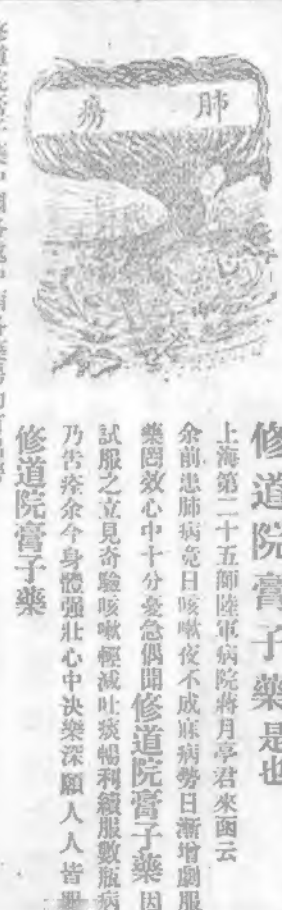 肺癆
修道院膏子藥是也
上海第二十五師陸軍病院將月亭君來函云
余前患肺病竟日咳嗽夜不成寐病勢日漸增劇服
藥罔效心中十分憂急偶聞修道院膏子藥因
試服之立見奇驗咳嗽輕減吐痰暢利續服數瓶病
乃告痊余今身體強壯心中決樂深願人人皆
修道院膏子藥